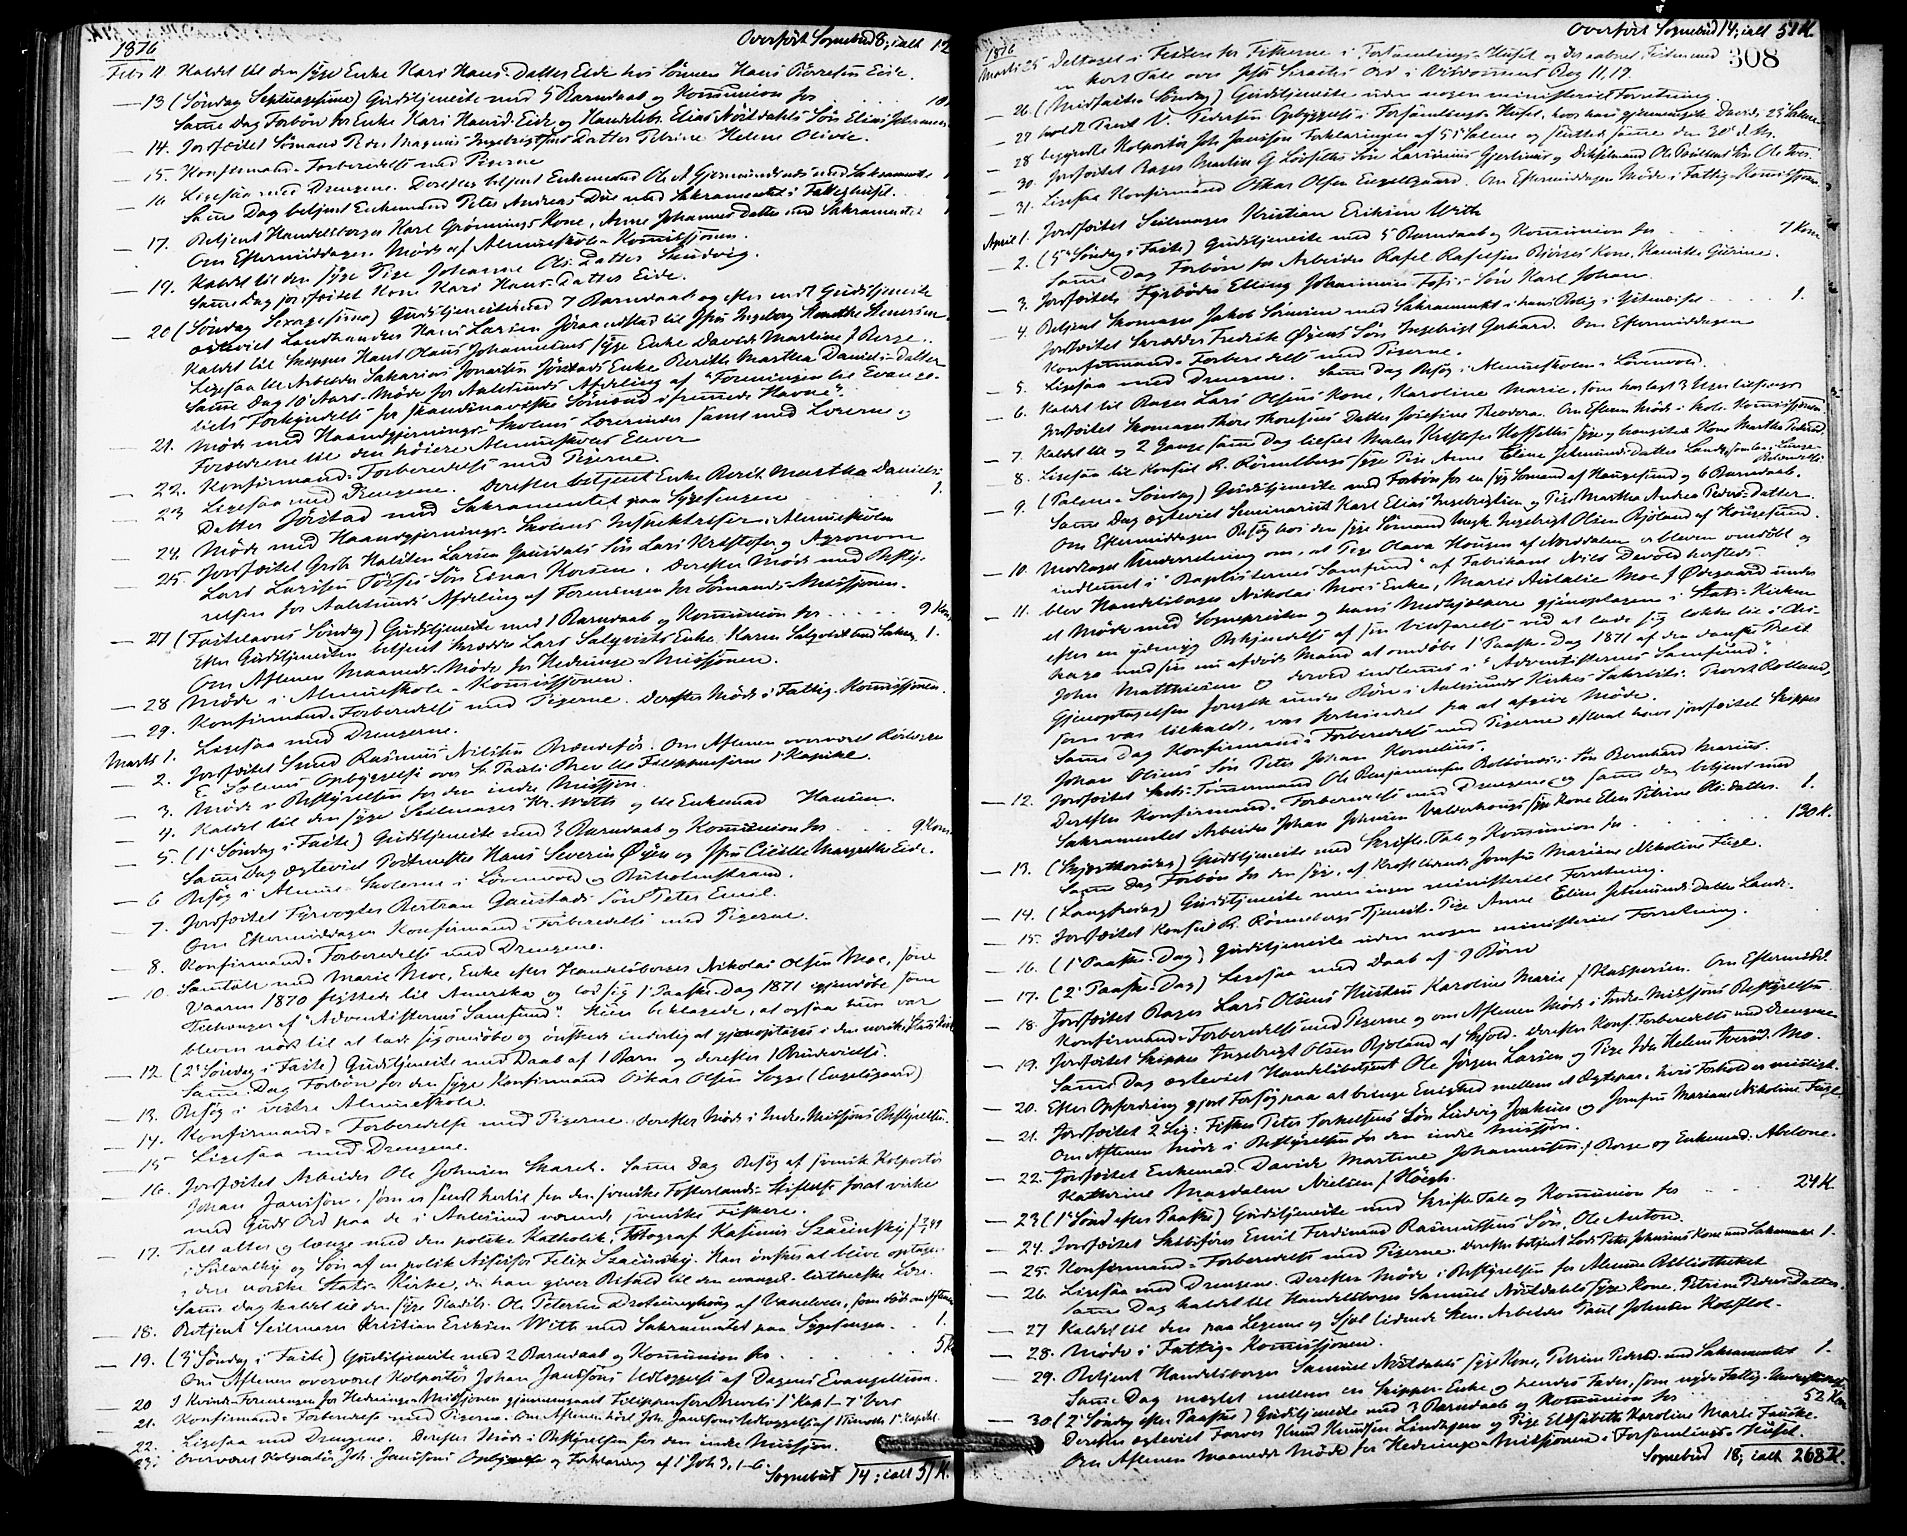 1876
Overført Sognebud 8, ialt 12
Febr 11 Kaldet til den syge Enke Kari Hans-Datter Eide hos Sønnen Hans Børresen Eide.
— 13 (Søndag Septuagesima) Gudstjeneste med 5 Barndaab og Kommunion for
Samme Dag Forbøn for Enke Kari Hansd. Eide og Handelsb. Elias Nøstdahls Søn Elias Johannes
— 14. Jordfæstet Sømand Peder Magnus Ingebrigtsens Datter Petrine Helene Olivie.
15. Konfirmand-Forberedelse med Pigerne
— 16 Ligesaa med Drengene. Derefter betjent Enkemand Ole A. med Sakramentet
Samme Dag betjent Enkemand Peter Andreas Due med Sakramentet i Fattighuset.
— 17. Betjent Handelsborger Karl Grønnings Kone, Anne Johannes Datter med Sakramentet
Om Eftermiddagen Møde af Almueskole-Komissjonen.
— 19. Kaldet til den syge Pige Johanne Ols-Datter
Samme Dag jordfæstet Kone Kari Hans-Datter Eide.
— 20 (Søndag Sexagesima) Gudstjeneste med 7 Barndaab og efter endt Gudstjeneste
ægteviet Landhandler Hans Larsen til Jfru Ingeborg
Kaldet til Skipper Hans Olaus Johannesens syge Enke Davide Martine f Berge.
Ligesaa til Arbeider Sakarias Jonassen Jørstads Enke Berith Martha Daniels-Datter
Samme Dag 10 Aars-Møde for Aalesunds Afdeling af "Foreningen til Evange-
liets Forkyndelse for skandinaviske Sømænd i fremmede Havne".
— 21. Møde med Haandgjernings-Skolens Lærerinder samt med Lærerne og
Forældrene til den høiere Almueskoles Elever
— 22. Konfirmand-Forberedelse med Pigerne.
— 23 Ligesaa med Drengene. Derefter betjent Enke Berit Martha Daniels-
Datter Jørstad med Sakramentet paa Sygesengen 1.
— 24. Møde med Haandgjernings-Skolens Inspektriser i Almueskolen
25. Jordfæstet Søn Lars Kristofer og Agronom
Lars Larssen Søn Einar. Derefter Møde med Besty-
relsen for Aalesunds Afdeling af Foreningen for Sømands-Missjonen.
— 27 (Fastelavns Søndag) Gudstjeneste med 1 Barndaab og Kommunion for 9 Kom
Efter Gudstjenesten betjent Skrædder Lars Salqvists Enke Karen Salqvist med Sakra. 1.
Om Aftenen Maaneds-Møde for Hedninge-Missjonen.
— 28 Møde i Almueskole-Komissjonen.
— 29. Konfirmand-Forberedelse med Pigerne. Derefter Møde i Fattig-Komissjonen.
Marts 1. Ligesaa med Drengene.
— 2. Jordfæstet Smed Rasmus Nilsen. Om Aftenen overværet
E. Solems Opbyggelse over St. Pauli Brev til Filippenserne 1 Kapitel.
— 3. Møde i Bestyrelsen for den indre Missjon.
— 4. Kaldet til den syge Seilmager Kr. With og til Enkemad Hansen.
— 5. (1ste Søndag i Faste) Gudstjeneste med 3 Barndaab og Kommunion for 9 Kom.
Samme Dag ægteviet Postmester Hans Severin Øyen og Jfru Cicilie Margrethe Eide.
— 6 Besøg i Almue-Skolerne i Lørenvold og Buholmstrand.
— 7. Jordfæstet Fyrvogter Bertran Gaustads Søn Peter Emil.
Om Eftermiddagen Konfirmand-Forberedelse med Pigerne.
— 8. Konfirmand-Forberedelse med Drengene.
— 10. Samtale med Marie Moe, Enke efter Handelsborger Nikolai Olsen Moe, som
Vaaren 1870 flyttede til Amerika og lod sig 1ste Paaske-Dag 1871 igjendøbe som
Tilhænger af "Adventisternes Samfund". Hun beklagede, at ogsaa hun var
bleven nødt til at lade sig omdøbe og ønskede inderlig at gjenoptages i den norske Stats Kirke
— 12. (2den Søndag i Faste) Gudstjeneste med Daab af 1 Barn og derefter 1 Brudevielse.
Samme Dag Forbøn for den syge Konfirmand Oskar Olsen Sogge (Engelsgaard)
— 13. Besøg i vestre Almueskole.
— 14. Konfirmand-Forberedelse med Pigerne. derefter Møde i Indre-Missjons Bestyrelsen.
— 15 Ligesaa med Drengene.
— 16. Jordfæstet Arbeider Ole Johnsen Skaret. Samme Dag Besøg af svensk Kolportør
Johan Jansson, som er sendt hertil fra den svenske Fosterlands-Stiftelse forat virke
med Guds Ord paa de i Aalesund værende svenske Fiskere.
— 17. Talt atter og længe med den polske Katholik; Fotograf Kasimir Szacinsky f 3/7 41
i Suwalky og Søn af en polsk Assessor Felix Szacinsky. Han ønsker at blive optagen
i den norske Stats-Kirke, da han giver Bifald til den evangel. lutherske Lære.
Samme Dag kaldet til den syge Ole Petersen af Vanelven, som døde om Aftenen
— 18. Betjent Seilmager Kristian Eriksen With med Sakramentet paa Sygesengen. 1.
— 19. (3die Søndag i Faste) Gudstjeneste med 2 Barndaab og Kommunion for 5 K
Om Aftenen overværet Kolportør Johan Janssons Udlæggelse af Dagens Evangelium.
— 20 I Kvinde-Foreningen for Hedninge-Missjonen gjennemgaaet Filippenser-Brevets 1ste Kap 1-7 Vers
— 21. Konfirmand-Forberedelse med Pigerne. Om Aftenen hørt Joh. Janssons Udlæggelse af 1 Timoth. 1ste Kapitel.
— 22. Ligesaa med Drengene. Derefter Møde i Bestyrelsen for den indre Missjon.
23. Overværet Kolportør Joh. Janssons Opbyggelse og Forklaring af 1 Joh 3, 1-6.
Sognebud 14; ialt 51 K.
Overført Sognebud 14; ialt 51 K.
308
1876
Marts 25 Deltaget i Festen for Fiskerne i Forsamlings-Huset og der aabnet Festen med
en kort Tale over Jesu Siraks Ord i Visdommens Bog 11, 17.
— 26 (Midfaste-Søndag) Gudstjeneste uden nogen ministeriel Forretning.
— 27 holdt Prest V. Pedersen Opbyggelse i Forsamlings-Huset, hvor han gjennemgik Davids 23de Salme
28 begyndte Kolportør Joh. Jansson Forklaringen af 51de Salme og sluttede samme den 30te ds.
— 30. Jordfæstet Bager Martin G. Løvseths Søn og Dikselmand Ole Paulsens Søn Ole Iver.
— 31. Ligesaa Konfirmand Oskar Olsen Engelsgaard. Om Eftermiddagen Møde i Fattig-Komissjonen
April 1. Jordfæstet Seilmager Kristian Eriksen With
— 2. (5te Søndag i Faste) Gudstjeneste med 5 Barndaab og Kommunion for 7 Kom
Samme Dag Forbøn for Arbeider Rafel Rafelsen Bjørges Kone, Hanikke Gurine.
— 3. Jordfæstet Fyrbøder Elling Johannesen Søn Karl Johan
— 4. Betjent Skomager Jakob Sørensen med Sakramentet i hans Bolig i 1.
Jordfæstet Skrædder Fredrik Øyens Søn Ingebrigt Gerhard. Om Eftermiddagen
Konfirmand-Forberedelse med Pigerne.
— 5. Ligesaa med Drengene. Samme Dag Besøg i Almueskolen-Lørenvold.
— 6. Kaldet til Bager Lars Olsens Kone, Karoline Marie, som har lagt 3 Uger
Jordfæstet Skomager Thore Thoresens Datter Josefine Theodora. Om Aftenen Møde i Skole-Komissjonen.
— 7. Kaldet til og 2 Gange samme Dag tilset Maler Kristofer syge og Kone Martha Pedersd.
8. Ligesaa til Konsul R. Rønnebergs syge Pige Anne Eline Jetmunds-Datter
— 9. (Palme-Søndag) Gudstjeneste med Forbøn for en syg Sømand af Haugesund og 6 Barndaab.
Samme Dag ægteviet Seminarist Karl Elias Ingebrigtsen og Pige Martha Andrea Peders-Datter.
Om Eftermiddagen Besøg hos den syge Sømand Ingebrigt Olsen Bjoland af Haugesund.
— 10. Modtaget Underretning om, at Pige Olava Hansen af Norddalen er bleven omdøbt og
indlemmet i "Baptisternes Samfund" af Fabrikant Nils Devold hersteds
— 11. blev Handelsborger Nikolai Moes Enke, Marie Aistalie Moe f Ødegaard under
et Møde med Sognepresten og hans Medhjælpere gjenoptagen i Stats-Kirken
efter en ydmyg Bekjendelse af sin Vildfarelse ved at lade sig lokke til i Chi-
kago med sin nu afdøde Mand at omdøbe 1ste Paaske-Dag 1871 af den danske Prest
John Matthiesen og derved indlemmes i "Adventisternes Samfund".
Gjenoptagelsen foregik under Bøn i Aalesunds Kirkes Sakristi. Provst Rolland,
som var tilkaldt, var forhindret fra at afgive Møde.
Samme Dag Konfirmand-Forberedelse med Pigerne efterat have jordfæstet Skipper
Johan Olsens Søn Peter Johan Kornelius.
— 12. Jordfæstet Ole Benjaminsen Søn Bernhard Marius.
Derefter Konfirmand-Forberedelse med Drengene og samme Dag betjent med
Sakramentet Arbeider Johan Johnsen Valderhougs syge Kone Elen Petrine Ols-Datter. 1.
— 13. (Skjærthorsdag) Gudstjeneste med Skrifte-Tale og Kommunion for 130 K.
Samme Dag Forbøn for den syge, af Kræft lidende Jomfru Mariane Nikoline Fugl.
— 14. (Langfredag) Gudstjeneste men ingen ministeriel Forretning.
— 15. Jordfæstet Konsul R. Rønnebergs Tjeneste-Pige Anne Eline Jetmunds-Datter
— 16. (1ste Paaske-Dag) Gudstjeneste uden nogen ministeriel Forretning.
— 17. (2den Paaske-Dag) Ligesaa med Daab af 9 Børn
— 18. Jordfæstet Bager Lars Olsens Hustru Karoline Marie f Kaspersen. Om Eftermidd.
Konfirmand-Forberedelse med Pigerne og om Aftenen Møde i Indre-Missjons Bestyrelsen
— 19. Jordfæstet Skipper Ingebrigt Olsen Bjoland af Skjold. derefter Konf. Forberedelse med Drengene
Samme Dag ægteviet Handelsbetjent Ole Jørgen Larsen og Pige Ida Helene Mo.
— 20. Efter Opfordring gjort Forsøg paa at bringe Enighed mellem et Ægtepar, hvis Forhold er misligt.
— 21. Jordfæstet 2 Lig: Fisker Peter Torkelsens Søn Ludvig Joakim og Jomfru Mariane Nikoline Fugl
Om Aftenen Møde i Bestyrelsen for den indre Missjon.
— 22 Jordfæstet Enkemad. Davide Martine Johannesen f Berge og Enkemad. Abelone
Katherine Magdalene Nielsen f Høegh.
— 23 (1ste Sønd. efter Paaske) Gudstjeneste med Skrifte-Tale og Kommunion for 24 K.
— 24. Jordfæstet Skibsfører Emil Ferdinand Rasmussens Søn, Ole Anton.
— 25. Konfirmand-Forberedelse med Pigerne. Derefter betjent Lods Peter Johnsens Kone med Sakramentet 1.
— 26. Ligesaa med Drengene. Derefter Møde i Bestyrelsen for Almue-Bibliotheket
Samme Dag kaldet til Handelsborger Samuel Nøstdahls syge Kone, Petrine Peders-Datter.
— 27 Kaldet til den paa Legeme og Sjæl lidende Arbeider Paul Johnsen
— 28. Møde i Fattig-Komissjonen.
— 29. Betjent Handelsborger Samuel Nøstdahls syge Kone, Petrine Pedersd. med Sakramentet 1.
Samme Dag mæglet mellem en Skipper-Enke og hendes Fader, som nyder Fattig-Understøttelse
— 30 (2den Søndag efter Paaske) Gudstjeneste med 3 Barndaab og Kommunion for 52 Kom
Derefter ægteviet Farver Knud Knudsen og Pige Elisabeth Karoline Marie
Om Aftenen Maaneds-Møde for Hedninge-Missjonen i Forsamlings-Huset.
Sognebud 18; ialt 268 K.